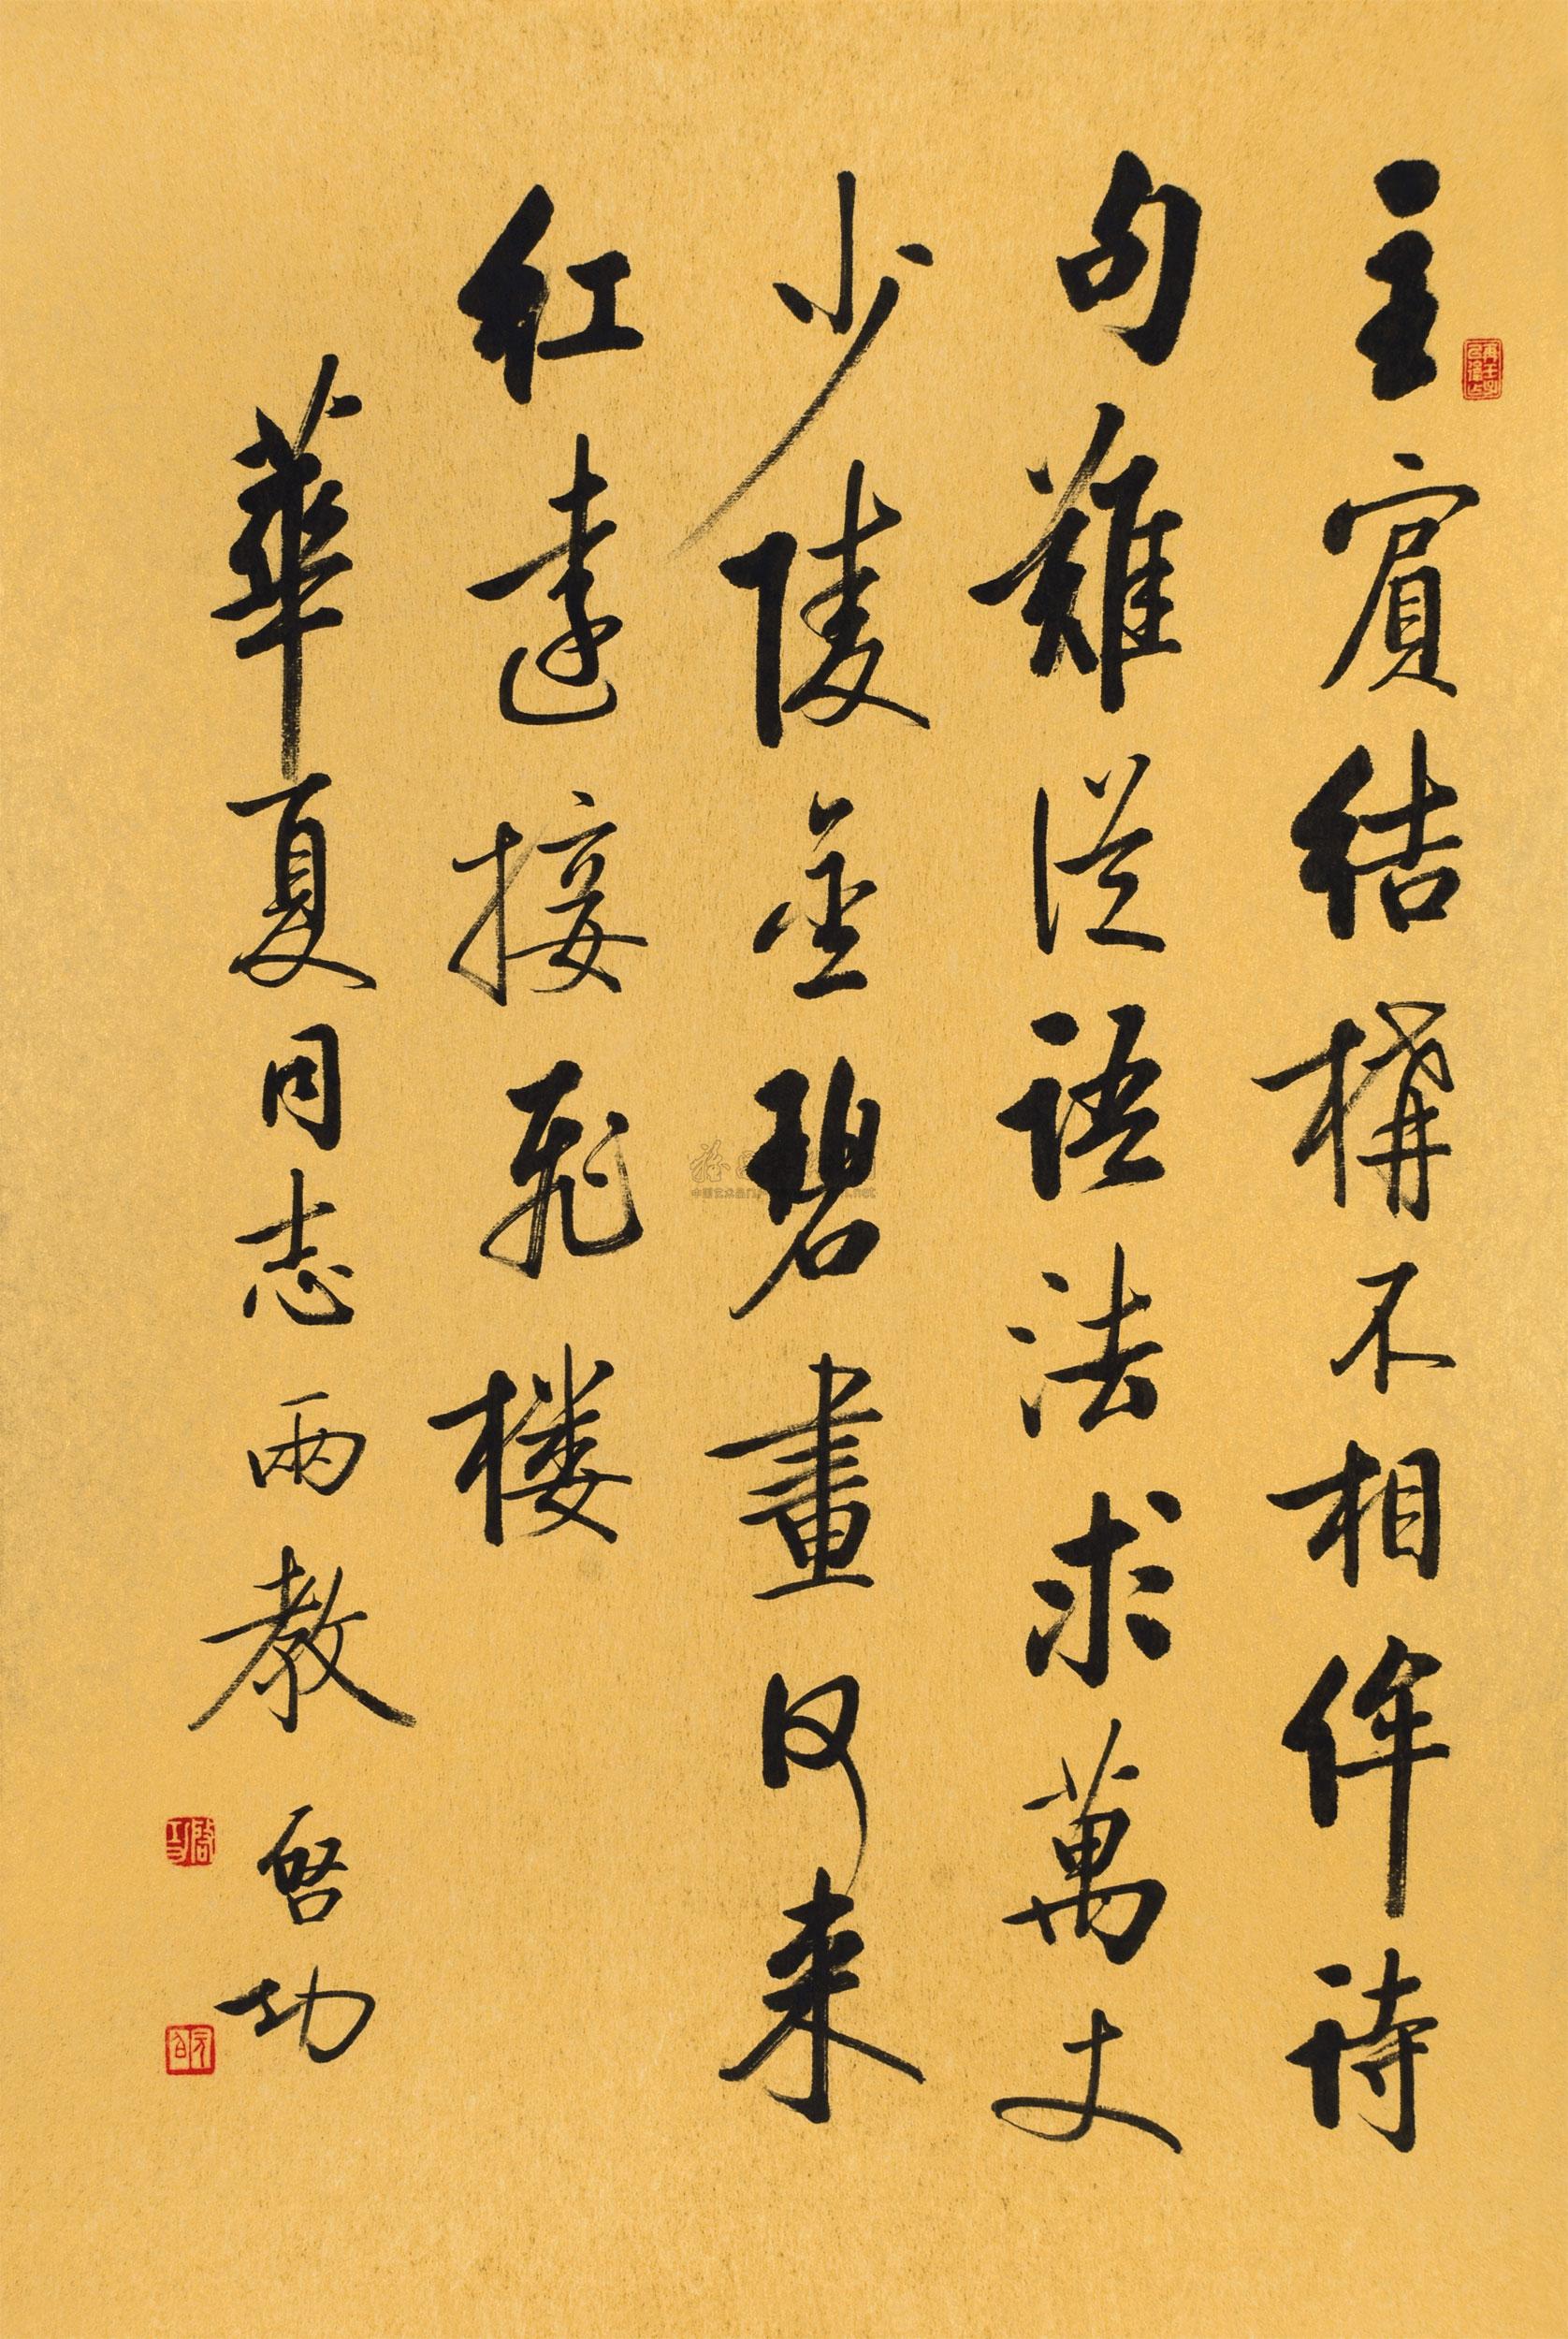 主賓結構不相侔詩
句難從語法求萬丈
少陵金碧畫何来
紅遠接飛楼
華夏同志兩教 啓功
啓功
元白